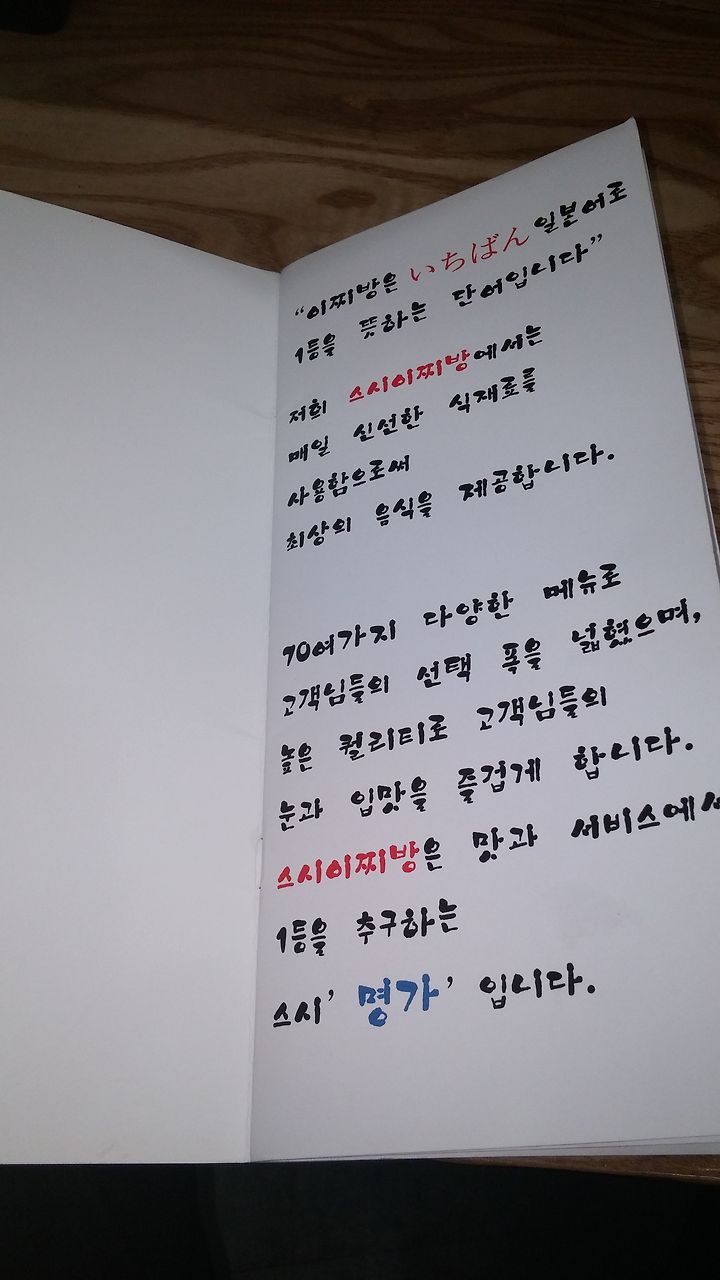 “이찌방은 いちばん 일본어로
1등을 뜻하는 단어입니다”
저희 스시이찌방에서는
매일 신선한 식재료를
사용함으로써
최상의 음식을 제공합니다.
70여가지 다양한 메뉴로
고객님들의 선택 폭을 넓혔으며,
높은 퀄리티로 고객님들의
눈과 입맛을 즐겁게 합니다.
스시이찌방은 맛과 서비스에서
1등을 추구하는
스시’ 명가’ 입니다.